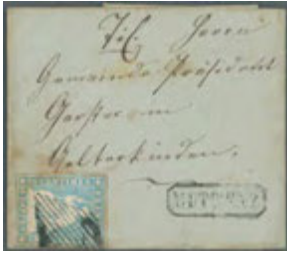 Tit. Herrn
Gemeinde Präsident
Gerster in
Gelterkinden.
MUTTENZ